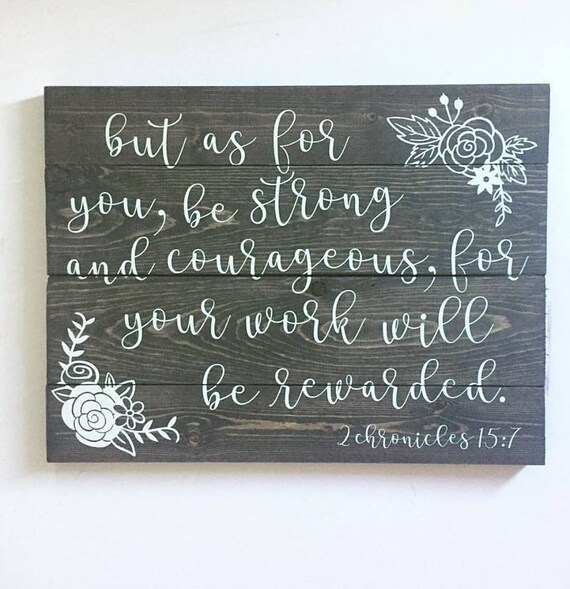 but as for
you, be strong
and courageous, for
your work will
be rewarded.
2 chronicles 15:7